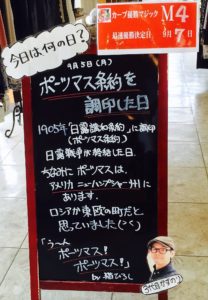 カープ優勝マジック M4
最速優勝決定日 9月7日
今日は何の日?
9月5日(月)
ポーツマス条約を
調印した日
1905年「日露講和条約」に調印
(ポーツマス条約)
日露戦争が終結した日。
ちなみにポーツマスは、
アメリカ ニューハンプシャー州に
あります。
ロシアか東欧の町だと
思っていました(>_<)
「うーん
ポーツマス!
ポーツマス!」
by 猫ひろし
3代目かずのり